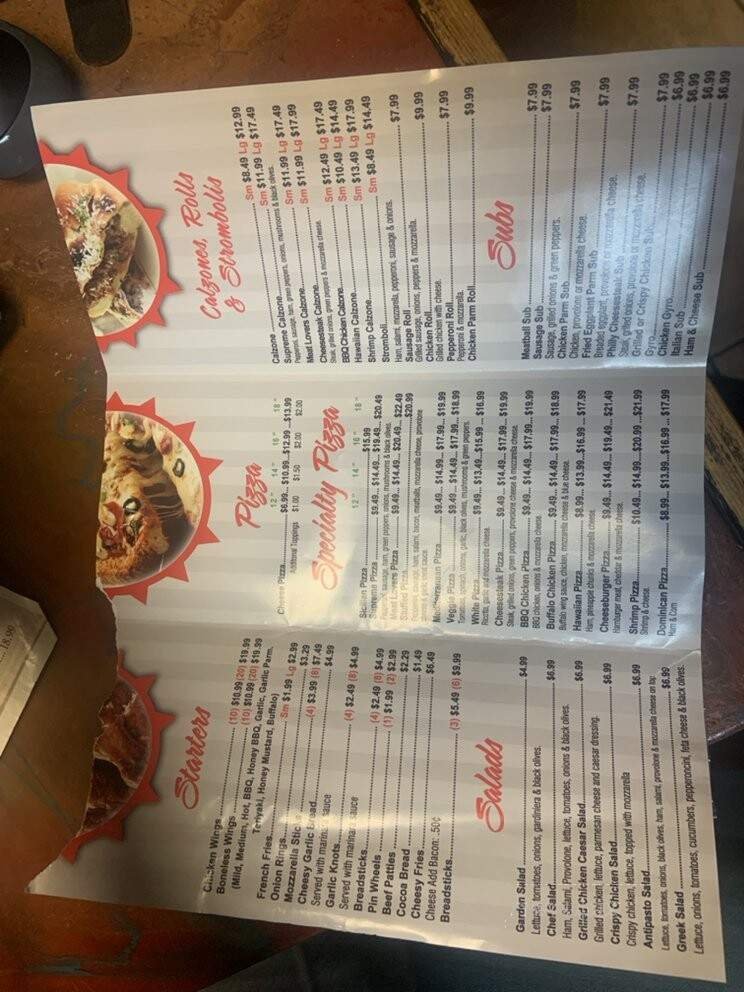 Starters
Chicken Wings (10) $10.99 (20) $19.99
Boneless Wings (10) $10.99 (20) $19.99
(Mild, Medium, Hot, BBQ, Honey BBQ, Garlic, Garlic Parm,
Teriyaki, Honey Mustard, Buffalo)
French Fries Sm $1.99 Lg $2.99
Onion Rings $3.29
Mozzarella Sticks (4) $3.99 (8) $7.49
Cheesy Garlic Bread $4.99
Served with marinara sauce
Garlic Knots (4) $2.49 (8) $4.99
Served with marinara sauce
Breadsticks (4) $2.49 (8) $4.99
Pin Wheels (1) $1.99 (2) $2.99
Beef Patties $2.29
Cocoa Bread $1.49
Cheesy Fries $6.49
Cheese Add Bacon: .50¢
Breadsticks (3) $5.49 (6) $9.99
Salads
Garden Salad $4.99
Lettuce, tomatoes, onions, gardiniera & black olives.
Chef Salad $6.99
Ham, Salami, Provolone, lettuce, tomatoes, onions & black olives.
Grilled Chicken Caesar Salad $6.99
Grilled chicken, lettuce, parmesan cheese and caesar dressing.
Crispy Chicken Salad $6.99
Crispy chicken, lettuce, topped with mozzarella
Antipasto Salad $6.99
Lettuce, tomatoes, onions, black olives, ham, salami, provolone & mozzarella cheese on top
Greek Salad $6.99
Lettuce, onions, tomatoes, cucumbers, pepperoncini, feta cheese & black olives.
Pizza
12" 14" 16" 18"
Cheese Pizza $6.99... $10.99...$12.99 ...$13.99
Additional Toppings $1.00 $1.50 $2.00 $2.00
Specialty Pizza
12" 14" 16" 18"
Sicilian Pizza $15.99
Supreme Pizza $9.49... $14.49... $19.49... $20.49
Pepperoni, sausage, ham, green peppers, onions, mushrooms & black olives.
Meat Lovers Pizza $9.49... $14.49... $20.49... $22.49
Stuffed Pizza $20.99
Pepperoni, sausage, ham, salami, bacon, meatballs, mozzarella cheese, provolone
Mediterranean Pizza $9.49... $14.99... $17.99... $19.99
Veggie Pizza $9.49... $14.49... $17.99... $18.99
Tomatoes, spinach, onions, garlic, black olives, mushrooms & green peppers.
White Pizza $9.49... $13.49...$15.99 ... $16.99
Ricotta, garlic and mozzarella cheese.
Cheesesteak Pizza $9.49... $14.49... $17.99... $19.99
Steak, grilled onions, green peppers, provolone cheese & mozzarella cheese.
BBQ Chicken Pizza $9.49... $14.49... $17.99... $19.99
BBQ chicken, onions & mozzarella cheese
Buffalo Chicken Pizza $9.49... $14.49... $17.99... $18.99
Buffalo wing sauce, chicken, mozzarella cheese & blue cheese.
Hawaiian Pizza $8.99... $13.99...$16.99 ... $17.99
Ham, pineapple chunks & mozzarella cheese
Cheeseburger Pizza $9.49... $14.49... $19.49... $21.49
Hamburger meat, cheddar & mozzarella cheese.
Shrimp Pizza $10.49... $14.99... $20.99 ...$21.99
Shrimp & cheese.
Dominican Pizza $8.99... $13.99...$16.99 ... $17.99
Ham & Corn
Calzones, Rolls
& Strombolis
Calzone Sm $8.49 Lg $12.99
Supreme Calzone Sm $11.99 Lg $17.49
Pepperoni, sausage, ham, green peppers, onions, mushrooms & black olives.
Meat Lovers Calzone Sm $11.99 Lg $17.49
Cheesesteak Calzone Sm $11.99 Lg $17.99
Steak, grilled onions, green peppers & mozzarella cheese.
BBQ Chicken Calzone Sm $12.49 Lg $17.49
Hawaiian Calzone Sm $10.49 Lg $14.49
Shrimp Calzone Sm $13.49 Lg $17.99
Stromboli Sm $8.49 Lg $14.49
Ham, salami, mozzarella, pepperoni, sausage & onions.
Sausage Roll $7.99
Grilled sausage, onions, peppers & mozzarella.
Chicken Roll $9.99
Grilled chicken with cheese.
Pepperoni Roll $7.99
Pepperoni & mozzarella.
Chicken Parm Roll $9.99
Subs
Meatball Sub $7.99
Sausage Sub $7.99
Sausage, grilled onions & green peppers.
Chicken Parm Sub $7.99
Chicken, provolone or mozzarella cheese.
Fried Eggplant Parm Sub $7.99
Breaded eggplant, provolone or mozzarella cheese.
Philly Cheesesteak Sub $7.99
Steak, grilled onions, provolone or mozzarella cheese.
Grilled or Crispy Chicken Sub
Gyro $7.99
Chicken Gyro $6.99
Italian Sub $6.99
Ham & Cheese Sub $6.99
$6.99
18.99